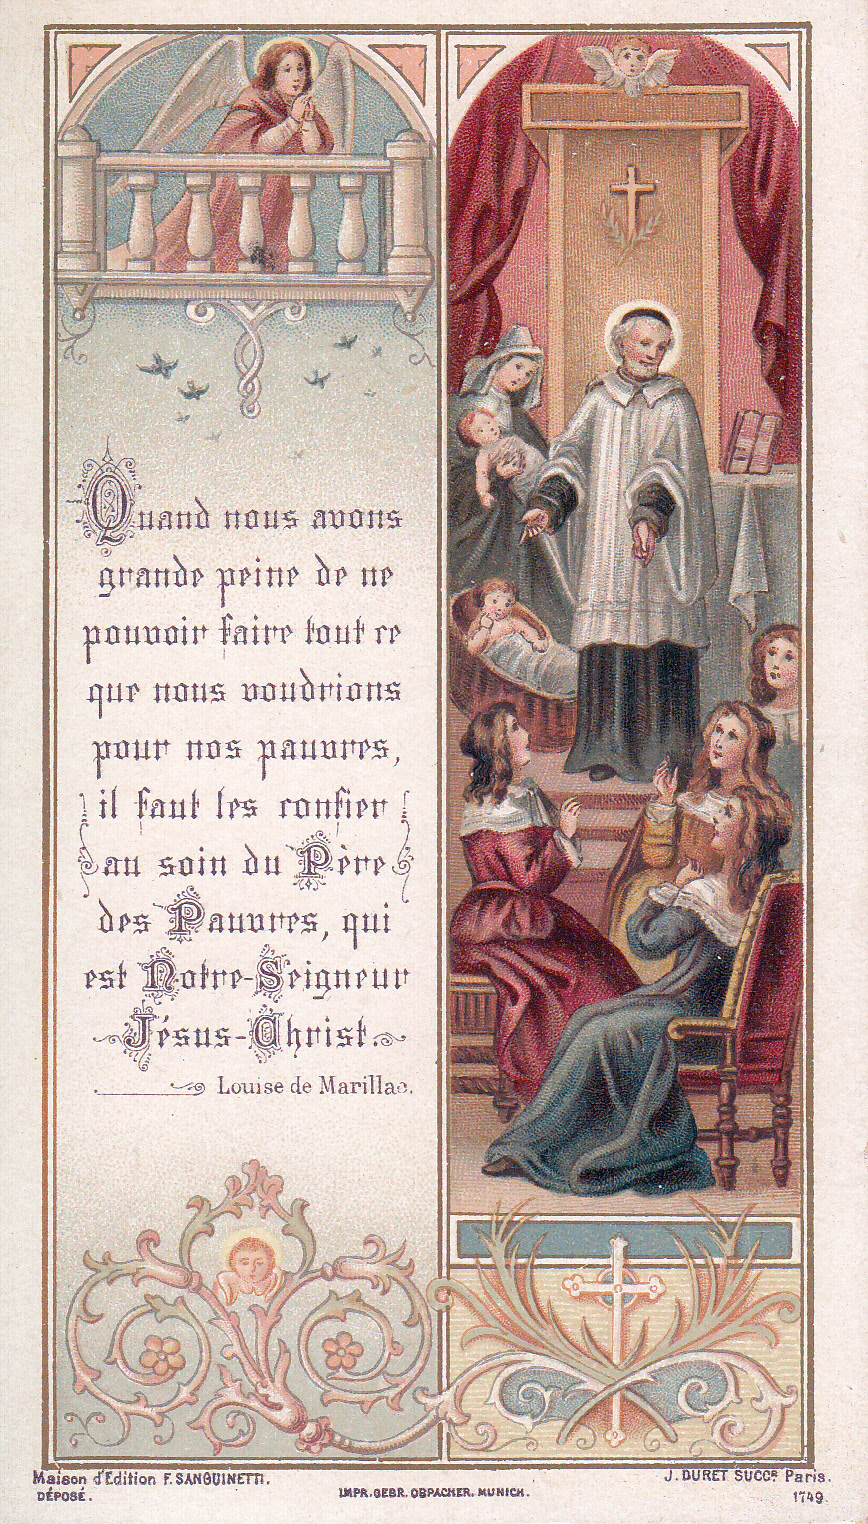 Quand nous avons
grande peine de ne
pouvoir faire tout ce
que nous voudrions
pour nos pauvres,
il faut les confier
au soin du Père
des Pauvres, qui
est Notre-Seigneur
Jésus-Christ.
Louise de Marillac.
Maison d'Edition F. SANGUINETTI.
DÉPOSÉ.
IMPR. GEBR. OBPACHER. MUNICH.
J. DURET SUCCR Paris.
1749.